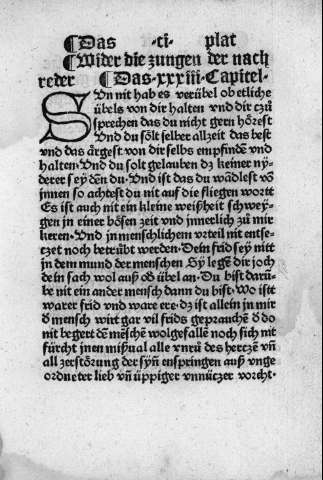 ¶Das ·ci· plat
¶Wider die zungen der nach
reder ¶Das·xxxiii·Capitel·
SUn nit hab es verübel ob etliche
übels von dir halten vnd dir czů
sprechen das du nicht gern hörest
Vnd du solt selber allzeit das best
vnd das ärgest von dir selbs empfinden vnd
halten·Vnd du solt gelauben dz keiner ny-
derer sey den du·Vnd ist das du wādlest vō
jnnen so achtest du nit auf die fliegen wortt
Es ist auch nit ein kleine weißheit schwey-
gen in einer bösen zeit vnd jnnerlich zů mir
keren·Vnd jn menschlichem vrteil nit entse-
tzet noch betrübt werden·Dein frid sey nitt
jn dem mund der menschen Sy legē dir joch
dein sach wol auß ob übel an·Du bist darü-
be nit ein ander mensch dann du bist·Wo istt
warer frid vnd ware ere·dz ist allein jn mir
d̄ mensch wirt gar vil frids geprauchē d̄ do
nit begert dē mēschē wolgefallē noch sich nit
fürcht jnen mißual alle vnrů des hertzē vñ
all zerstörung der syñ enspringen auß vnge
ordneter lieb vñ üppiger vnnützer vorcht·